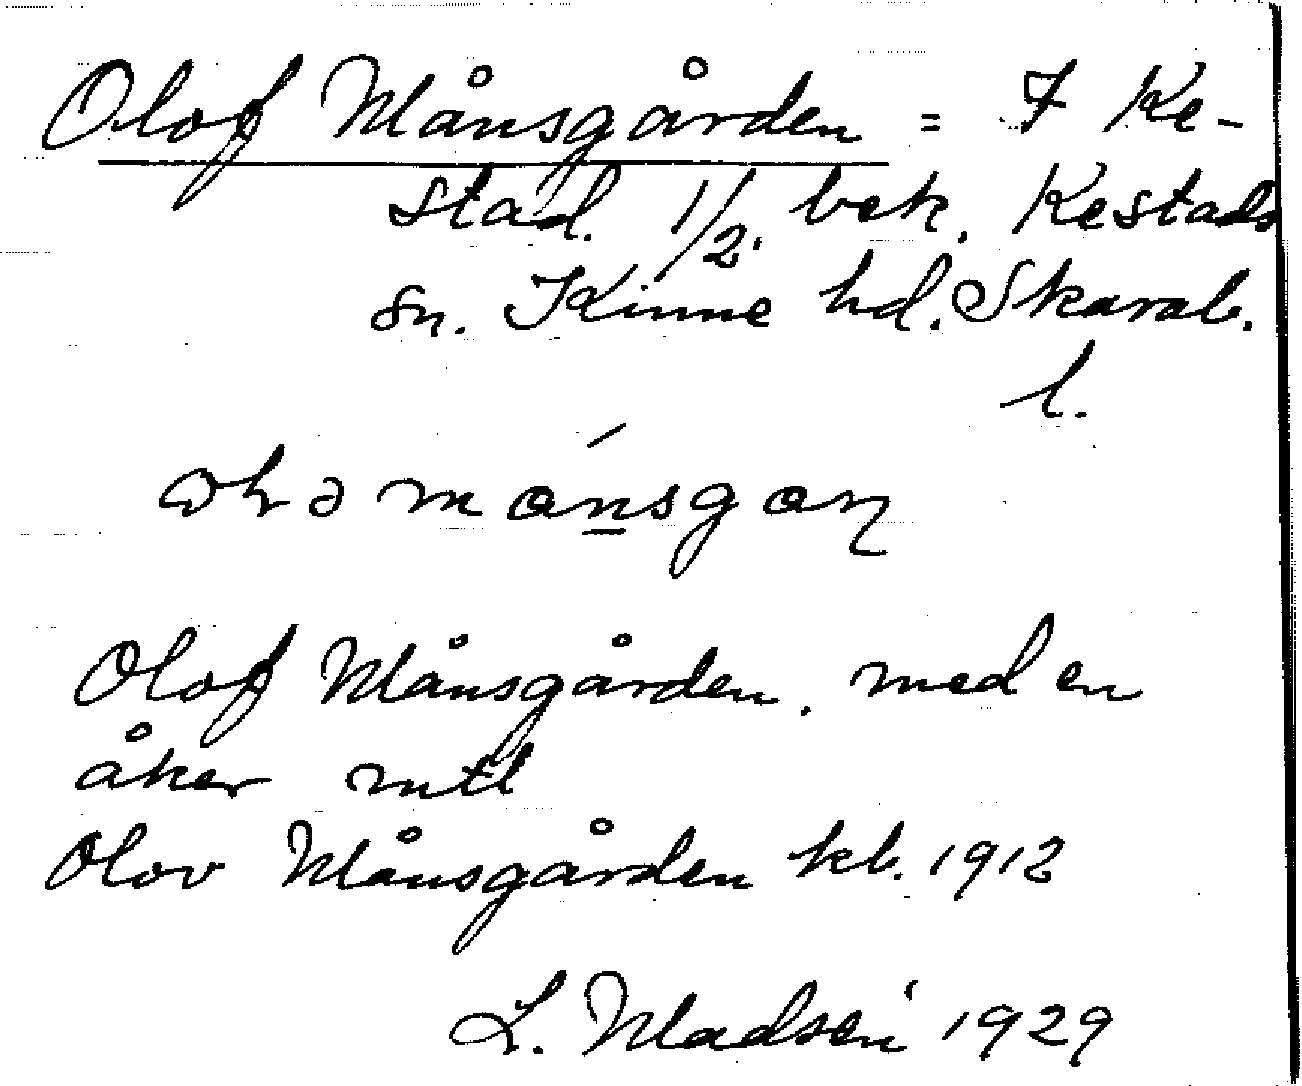 Olof Månsgården = 7 Ke-
stad. 1/2. bek. Kestads
sn. Kinne hd. Skarab.
l.
månsgaɳ
Olof Månsgården. med en
åker mtl
Olov Månsgården kb. 1912
L. Madsén 1929